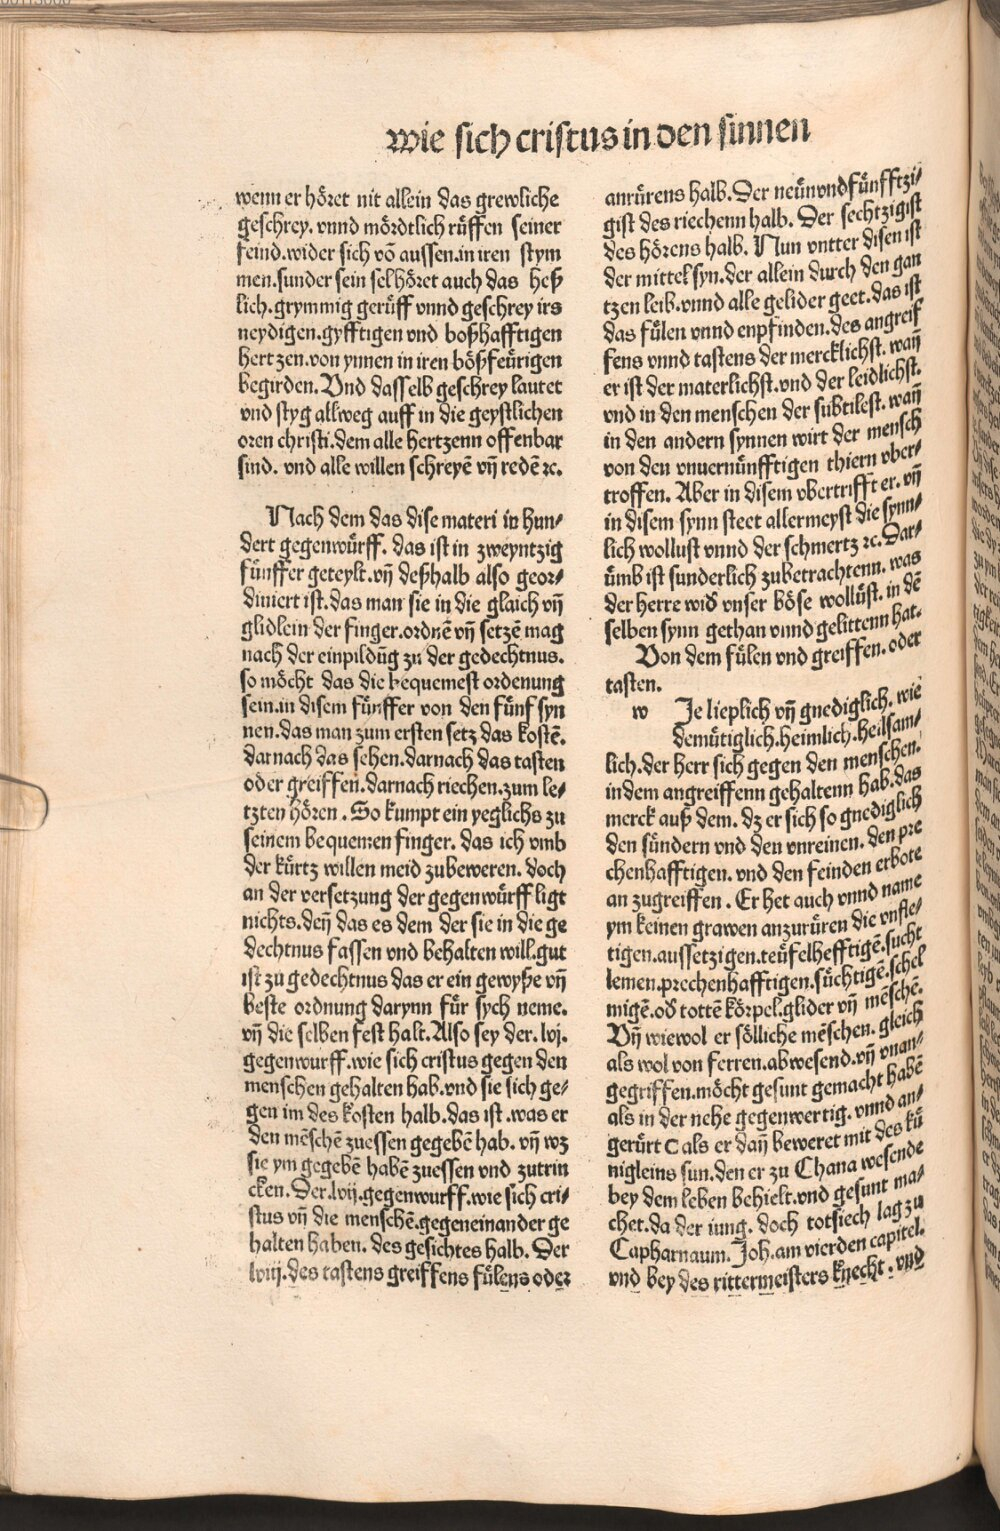 wie sich cristus in den sinnen
wenn er höret nit allein das grewliche
geschrey. vnnd mördtlich rüffen seiner
feind. wider sich võ aussen. in iren stym
men. sunder sein sel höret auch das heß
lich. grymmig gerüff vnnd geschrey irs
neydigen. gyfftigen vnd boßhafftigen
hertzen. von ynnen in iren bößfeürigen
begirden. Vnd dasselb geschrey lautet
vnd styg allweg auff in die geystlichen
oren christi. dem alle hertzenn offenbar
sind. vnd alle willen schreyẽ vñ redẽ ⁊c.
Nach dem das dise materi in hun⸗
dert gegenwürff. das ist in zweyntzig
fünffer geteylt. vñ deßhalb also geor⸗
diniert ist. das man sie in die glaich vñ
glidlein der finger. ordnẽ vñ setzẽ mag
nach der einpildũg zu der gedechtnus.
so möcht das die bequemest ordenung
sein. in disem fünffer von den fünf syn
nen. das man zum ersten setz das kostẽ.
darnach das sehen. darnach das tasten
oder greiffen. darnach riechen. zum le⸗
tzten hören. So kumpt ein yeglichs zu
seinem bequemen finger. das ich vmb
der kürtz willen meid zubeweren. doch
an der versetzung der gegenwürff ligt
nichts. deñ das es dem der sie in die ge
dechtnus fassen vnd behalten will. gut
ist zu gedechtnus das er ein gewyße vñ
beste ordnung darynn für sych neme.
vñ die selben fest halt. Also sey der. lvj.
gegenwurff. wie sich cristus gegen den
menschen gehalten hab. vnd sie sich ge⸗
gen im des kosten halb. das ist. was er
den mẽschẽ zuessen gegebẽ hab. vñ wz
sie ym gegebẽ habẽ zuessen vnd zutrin
cken. Der. lvij. gegenwurff. wie sich cri⸗
stus vñ die menschẽ. gegeneinander ge
halten haben. des gesichtes halb. Der
lviij. des tastens greiffens fülens oder
anrürens halb. Der neünvndfünfftzi⸗
gist des riechenn halb. Der sechtzigist
des hörens halb. Nun vntter disen ist
der mittel syn. der allein durch den gan
tzen leib. vnnd alle gelider geet. das ist
das fülen vnnd enpfinden. des angreif
fens vnnd tastens der mercklichst. wañ
er ist der materlichst. vnd der leidlichst.
vnd in den menschen der subtilest. wañ
in den andern synnen wirt der mensch
von den vnuernünfftigen thiern vber⸗
troffen. Aber in disem vbertrifft er. vñ
in disem synn steet allermeyst die synn⸗
lich wollust vnnd der schmertz ⁊c. Dar⸗
ümb ist sunderlich zubetrachtenn. was
der herre wid̕ vnser böse wollüst. in dẽ
selben synn gethan vnnd gelittenn hat.
Von dem fülen vnd greiffen. oder
tasten.
w Je lieplich vñ gnediglich. wie
demütiglich. heimlich. heilsam⸗
lich. der herr sich gegen den menschen.
in dem angreiffenn gehaltenn hab. das
merck auß dem. dz er sich so gnediglich
den sündern vnd den vnreinen. den pre
chenhafftigen. vnd den feinden erbote
an zugreiffen. Er het auch vnnd name
ym keinen grawen anzurüren die vnfle⸗
tigen. aussetzigen. teüfelhefftigẽ. sucht
lemen. prechenhafftigen. süchtigẽ. schel
migẽ. od̕ tottẽ körpel. glider vñ mẽschẽ.
Vñ wiewol er sölliche mẽschen. gleich
als wol von ferren. abwesend. vñ vnan⸗
gegriffen. möcht gesunt gemacht habẽ
als in der nehe gegenwertig. vnnd an⸗
gerürt ( als er dañ beweret mit des kü
nigleins sun. den er zu Chana wesende
bey dem leben behielt. vnd gesunt ma⸗
chet. da der iung. doch totsiech lag zu
Capharnaum. Joh. am vierden capitel.
vnd bey des rittermeisters knecht. vnd